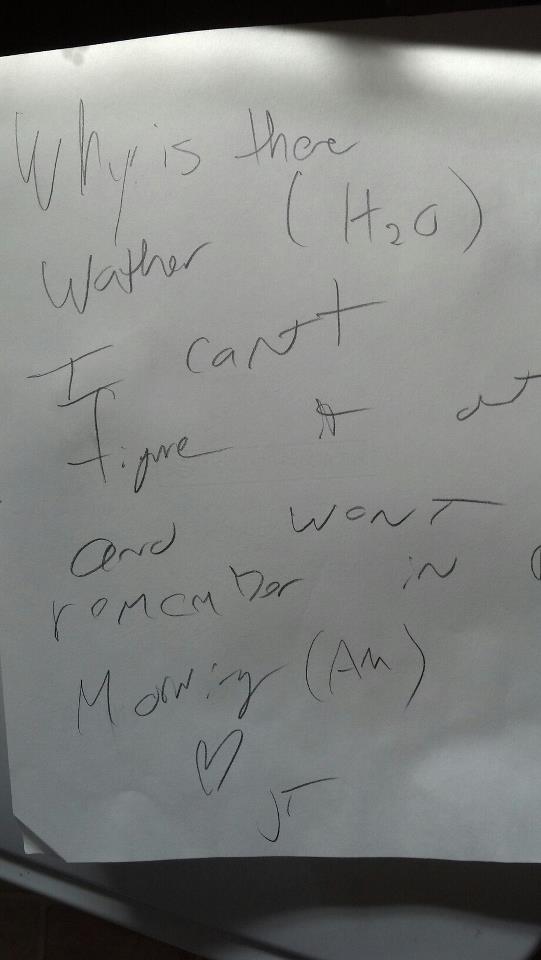 Why is there
(H2O)
Wather
I can't
figure it out
and wont
remember in
Morning (AM)
♡
JT